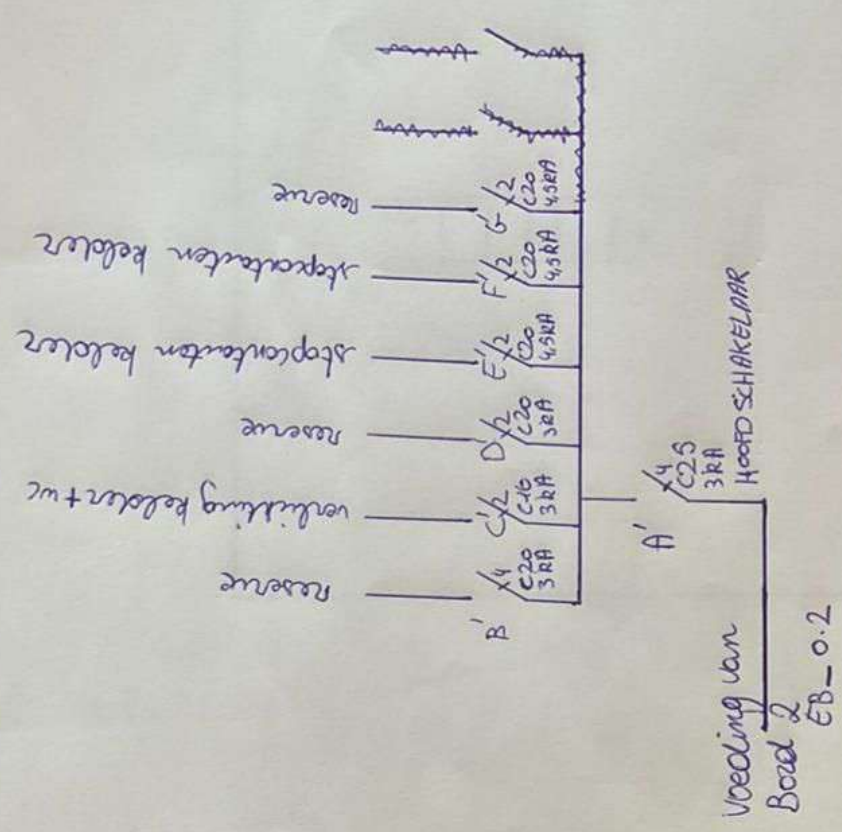 reserve
verlichting kelder + wc
reserve
stopcontacten kelder
stopcontacten kelder
reserve
B'
x4
C20
3kA
C'
x2
C16
3kA
D'
x2
C20
3kA
E'
x2
C20
4,5kA
F'
x2
C20
4,5kA
G'
x2
C20
4,5kA
A'
x4
C25
3kA
HOOFDSCHAKELAAR
Voeding van
Bord 2
EB_0.2